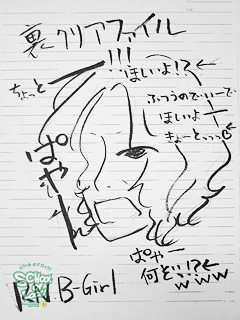 裏クリアファイル
!!!
ちょっと
ほいよ!?←
ふつうので…いーで
ほいよ
きょーとっっ
ぱやー
ぱやー
何ぞ!!?←
www
SCHOOL
RN B-Girl